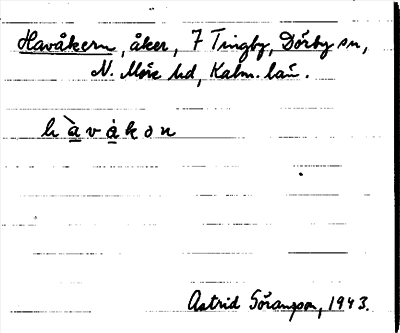 Havåkern, åker, 7 Tingby, Dörby sn,
N. Möre hd, Kalm. län.
h à̲ v å̲ k ə n
Astrid Göransson, 1943.